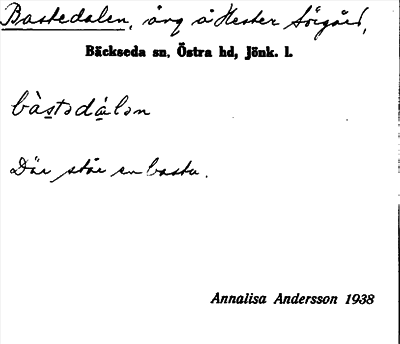 Bastedalen, äng å Hester Sörgård,
Bäckseda sn, Östra hd, Jönk. l.
bàstədálən
Där står en basta.
Annalisa Andersson 1938